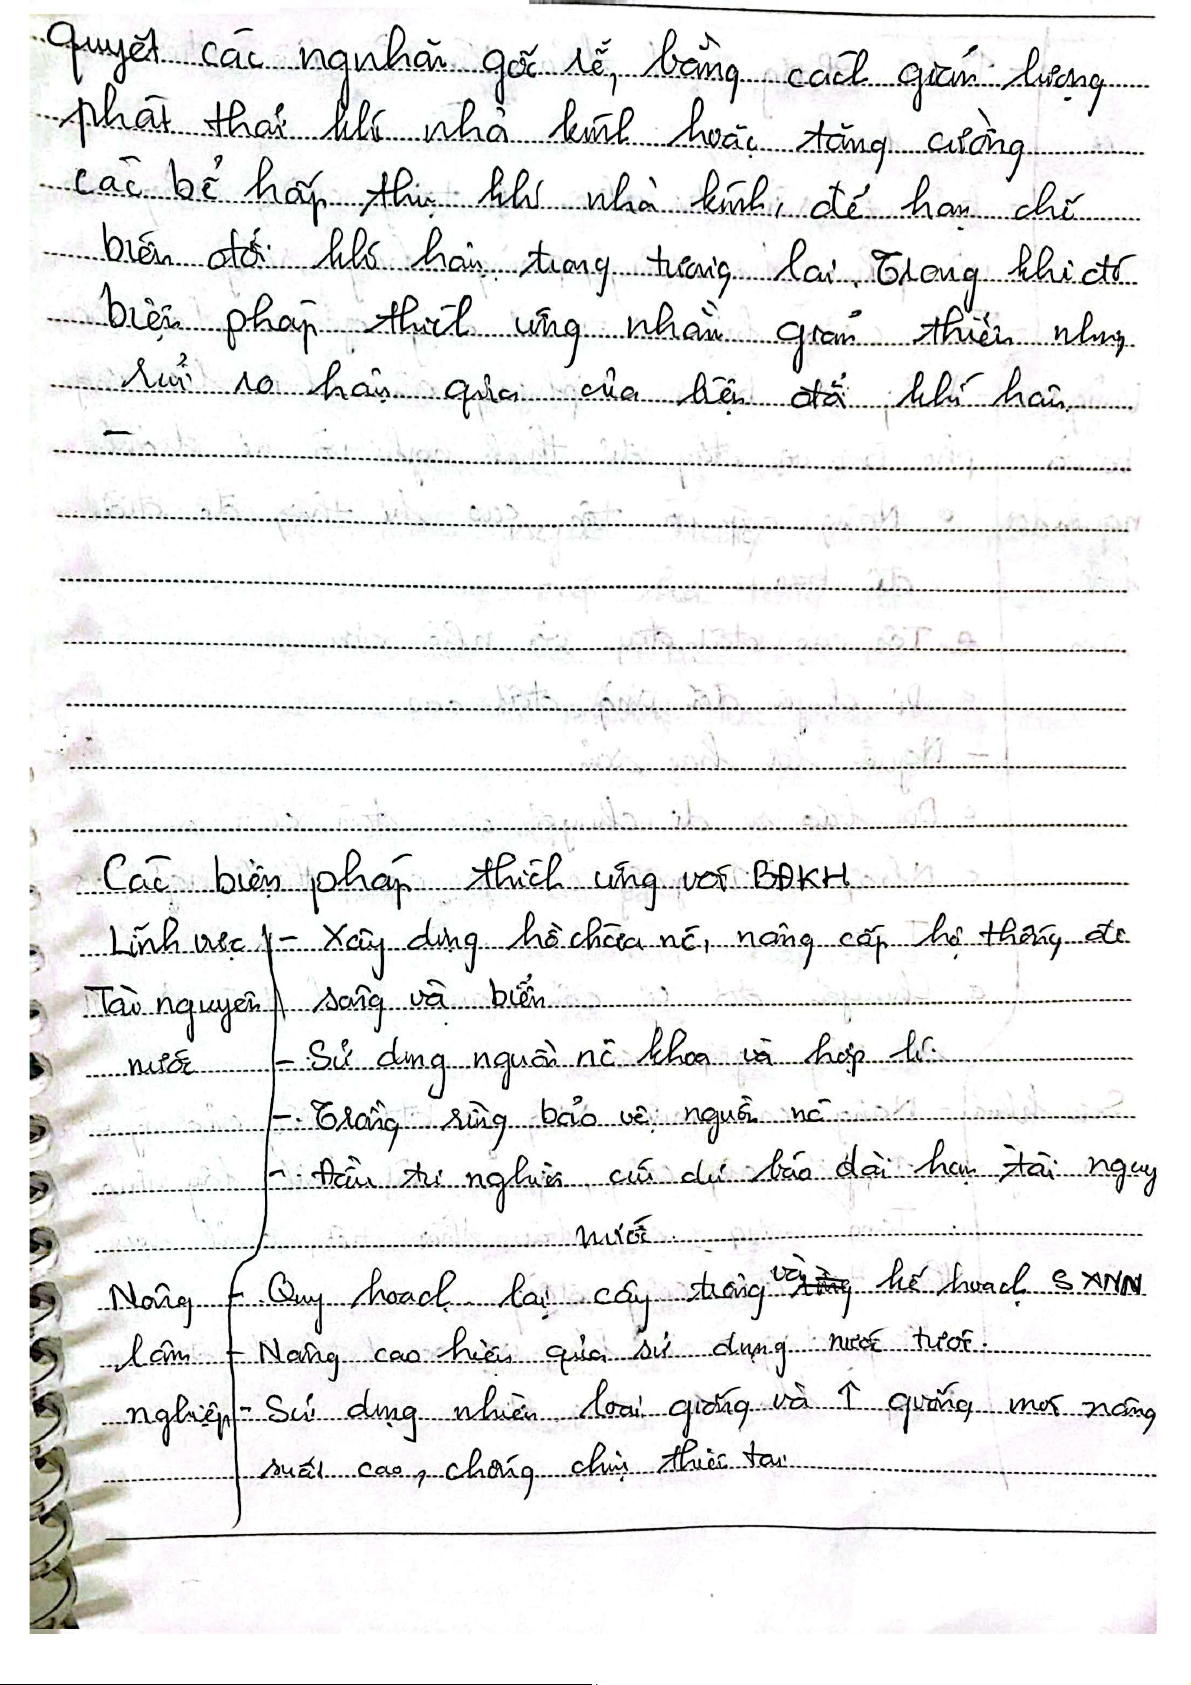 quyết các ngnhân gốc rễ, bằng cách giảm lượng
phát thải khí nhà kính hoặc tăng cường
các bể hấp thụ khí nhà kính, để hạn chế
biến đổi khí hậu trong tương lai. Trong khi đó
biện pháp thích ứng nhằm giảm thiểu những
rủi ro hậu quả của biến đổi khí hậu.
-
Các biện pháp thích ứng với BĐKH
Lĩnh vực - Xây dựng hồ chứa nc, nâng cấp hệ thống đê
Tài nguyên sông và biển
nước - Sử dụng nguồn nc khoa và hợp lí.
- Trồng rừng bảo vệ nguồn nc
- Đầu tư nghiên cứu dự báo dài hạn tài nguy
nước
Nông - Quy hoạch lại cây trồng và kế hoạch SXNN
lâm - Nâng cao hiệu quả sử dụng nước tưới.
nghiệp - Sử dụng nhiều loại giống và ↑ giống mới năng
suất cao, chống chịu thiên tai